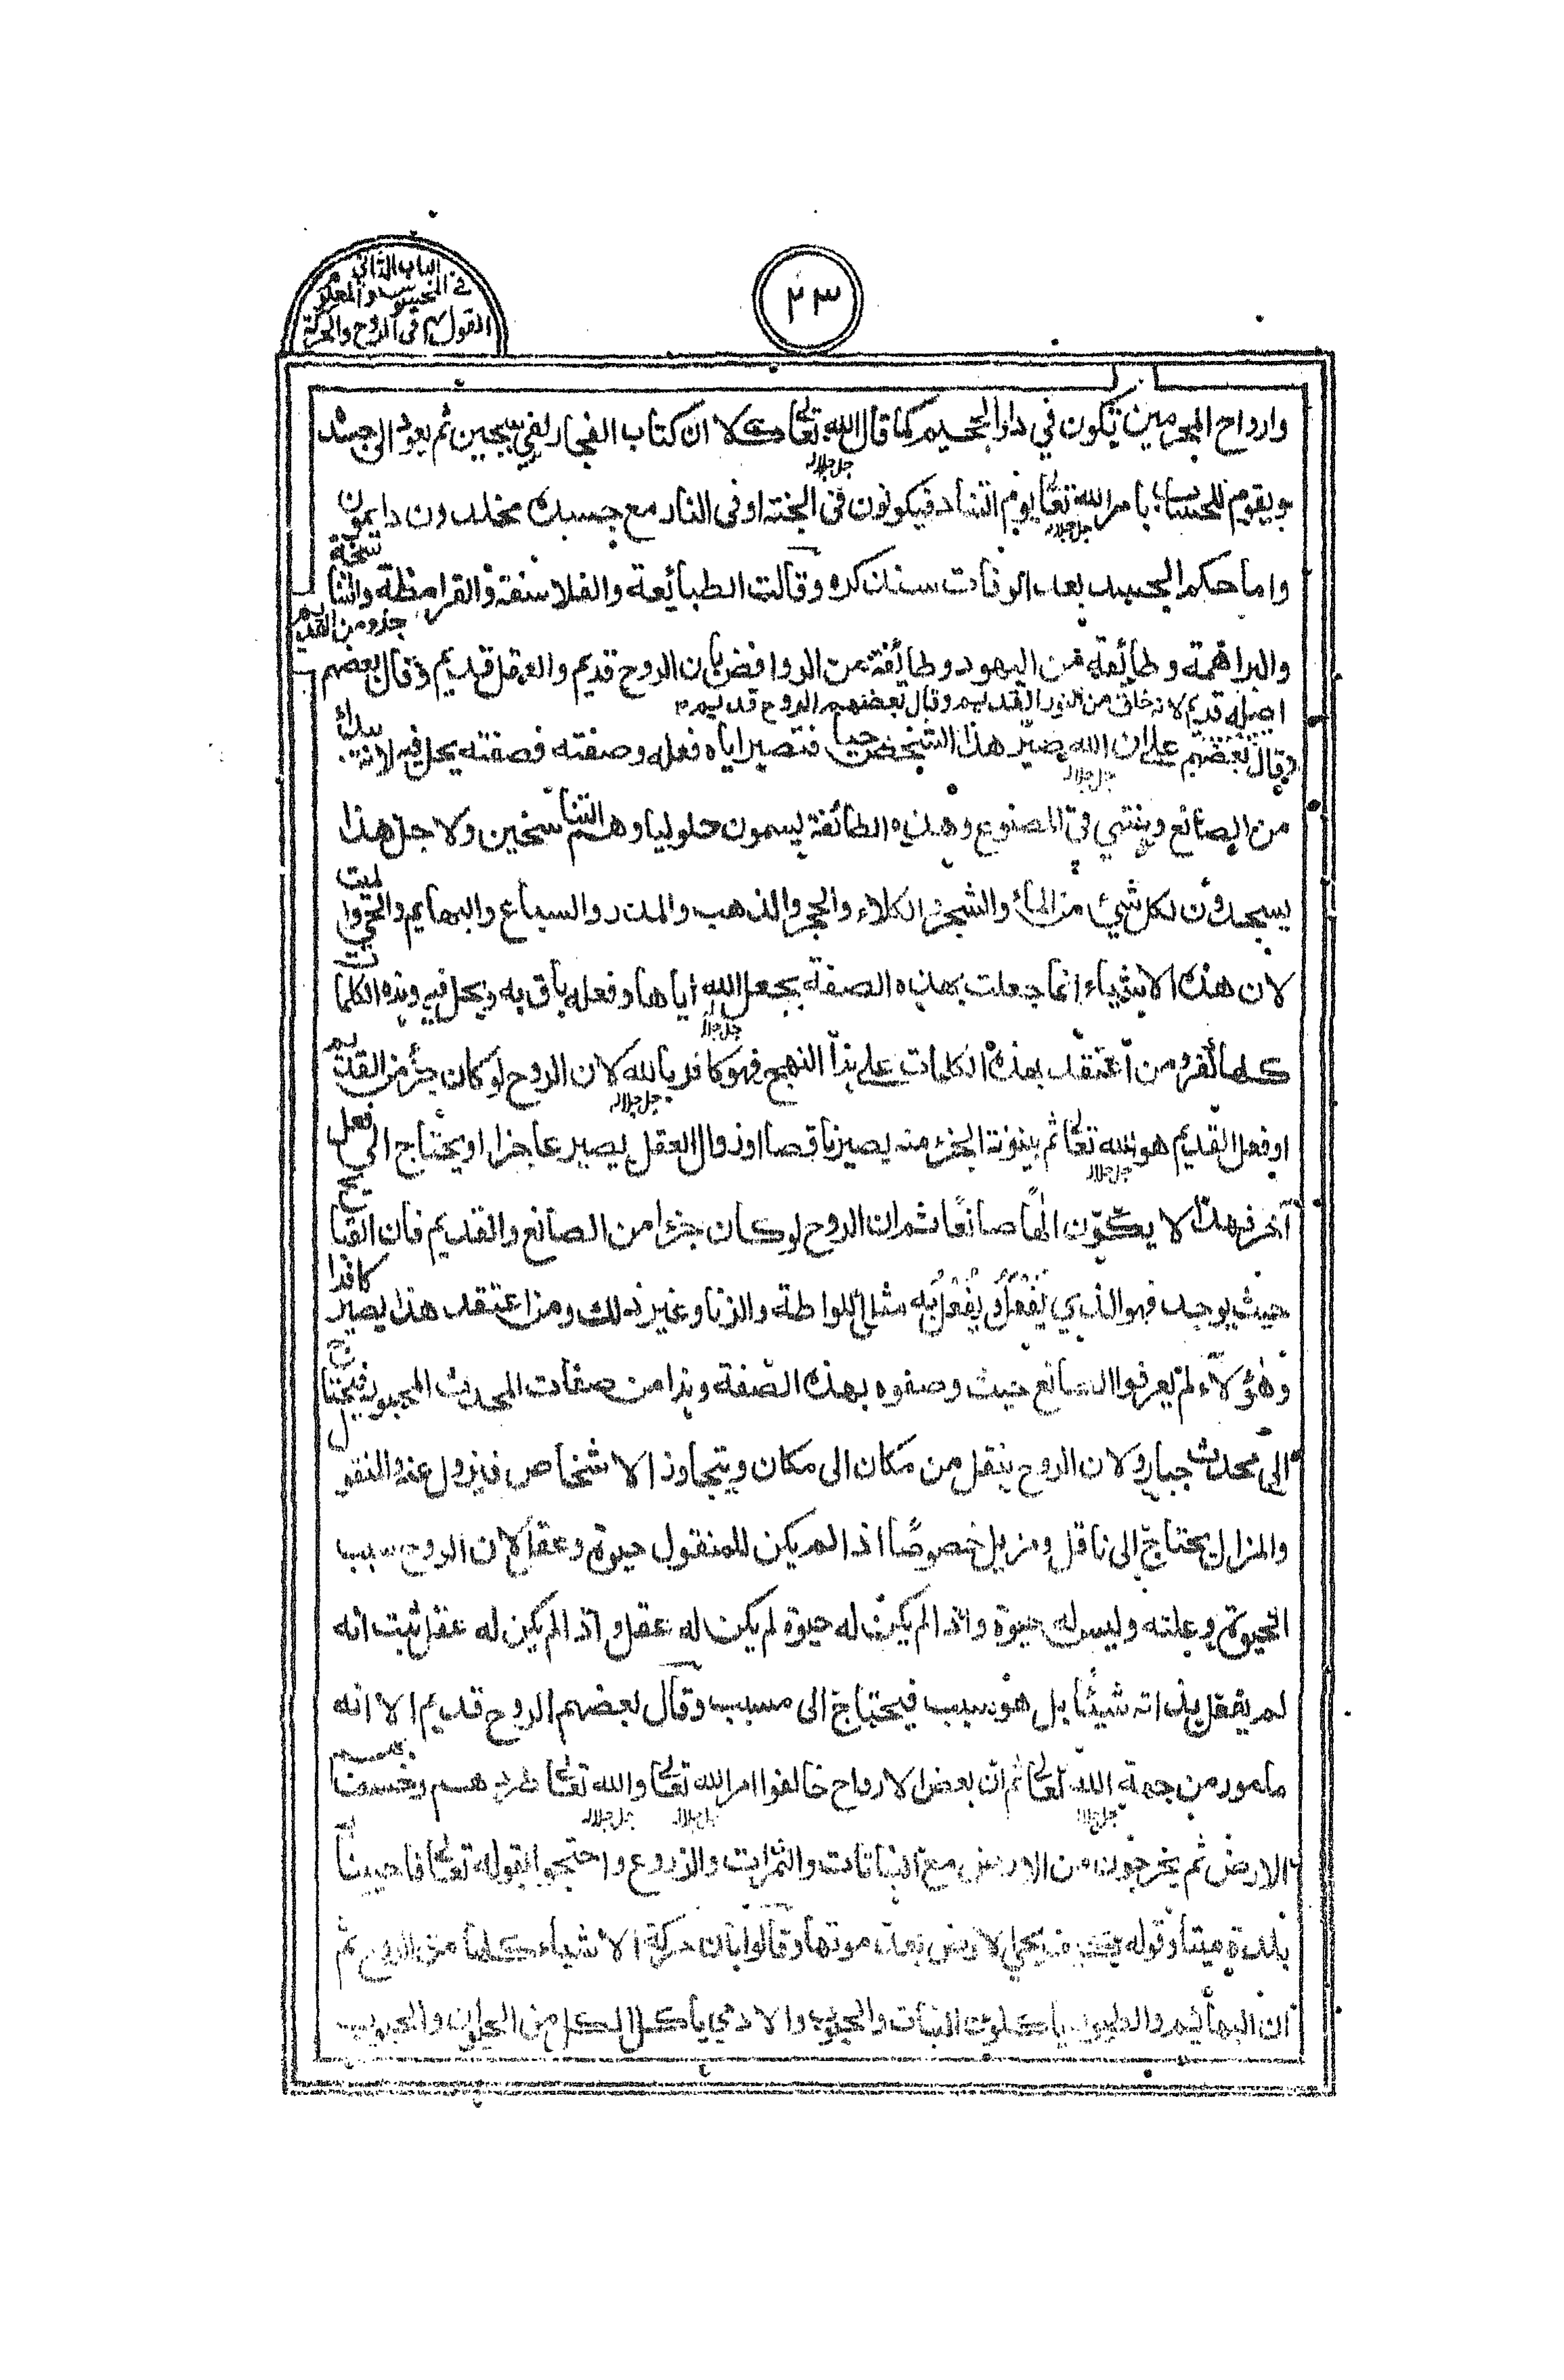 ٢٣
الباب الثاني
في المحسوس والمعقول
القول في الروح والحركة
وارواح المجرمين تكون في دار الجحيم كما قال الله تعالى كلا ان كتاب الفجار لفي سجين ثم يعود الى جسده
جل جلاله
ويقوم للحساب بامر الله تعالى يوم التناد فيكونون في الجنة او في النار مع جسده مخلدون دايمون
جل جلاله
واما حكم الجسد بعد الوفات سنذكره وقالت الطبائعة والفلاسفة والقرامطة والتناسخية
والبراهمة وطائفة من اليهود وطائفة من الروافض بان الروح قديم والعقل قديم وقال بعضهم جزء من القديم
اصله قديم لانه خلق من النور القديم وقال بعضهم الروح قديم
وقال بعضهم على ان الله صير هذا الشخص حيا فتصير اياه فعله وصفته فصفته يحل فيه لانه
جل جلاله
من الصانع وينتهي في المصنوع وهذه الطائفة يسمون حلوليا وهم التناسخين ولاجل هذا
يسجدون لكل شيئ من الماء والشجر والكلاء والحجر والذهب والمدر والسباع والبهايم والحيوانات
لان هذه الاشياء انما جعلت بهذه الصفة بجعل الله اياها وفعله باق به ويحل فيه وهذه الكلمات
جل جلاله
كلها كفر ومن اعتقد بهذه الكلمات على هذا النهج فهو كافر بالله لان الروح لو كان جزء من القديم
جل جلاله
او فعل القديم هو الله تعالى ثم بينونة الجزء منه يصير ناقصا او زوال العقل يصير عاجزا او يحتاج الى فعل
جل جلاله
آخر فهذا لا يكون الها صانعا ثم ان الروح لو كان جزءا من الصانع والقديم فان القبايح
حيث يوجد فهو الذي يفعل او يفعل به مثل اللواطة والزنا وغير ذلك ومن اعتقد هذا يصير كافرا
وهؤلاء لم يعرفوا الصانع حيث وصفوه بهذه الصفة وهذا من صفات المحدث المجبور فيحتاج
الى محدث جبار ولان الروح ينقل من مكان الى مكان ويتجاوز الاشخاص فيزول عنه والمنقول
والمزال يحتاج الى ناقل ومزيل خصوصا اذا لم يكن للمنقول حيوة وعقل لان الروح سبب
الحيوة وعلته وليس له حيوة واذا لم يكن له حيوة لم يكن له عقل واذا لم يكن له عقل ثبت انه
لم يفعل بذاته شيئا بل هو سبب فيحتاج الى مسبب وقال بعضهم الروح قديم الا انه
مامور من جهة الله تعالى ثم ان بعض الارواح خالفوا امر الله تعالى والله تعالى طردهم وخسف بهم
جل جلاله جل جلاله جل جلاله
الارض ثم يخرجون من الارض مع النباتات والثمرات والزروع واحتجوا بقوله تعالى فاحيينا به
بلدة ميتا وقوله يحيي الارض بعد موتها وقالوا بان حركة الاشياء كلها من الروح ثم
ان البهائيم والطيور ياكلون النبات والحبوب والادمي ياكل الكل من الحيوان والحبوب